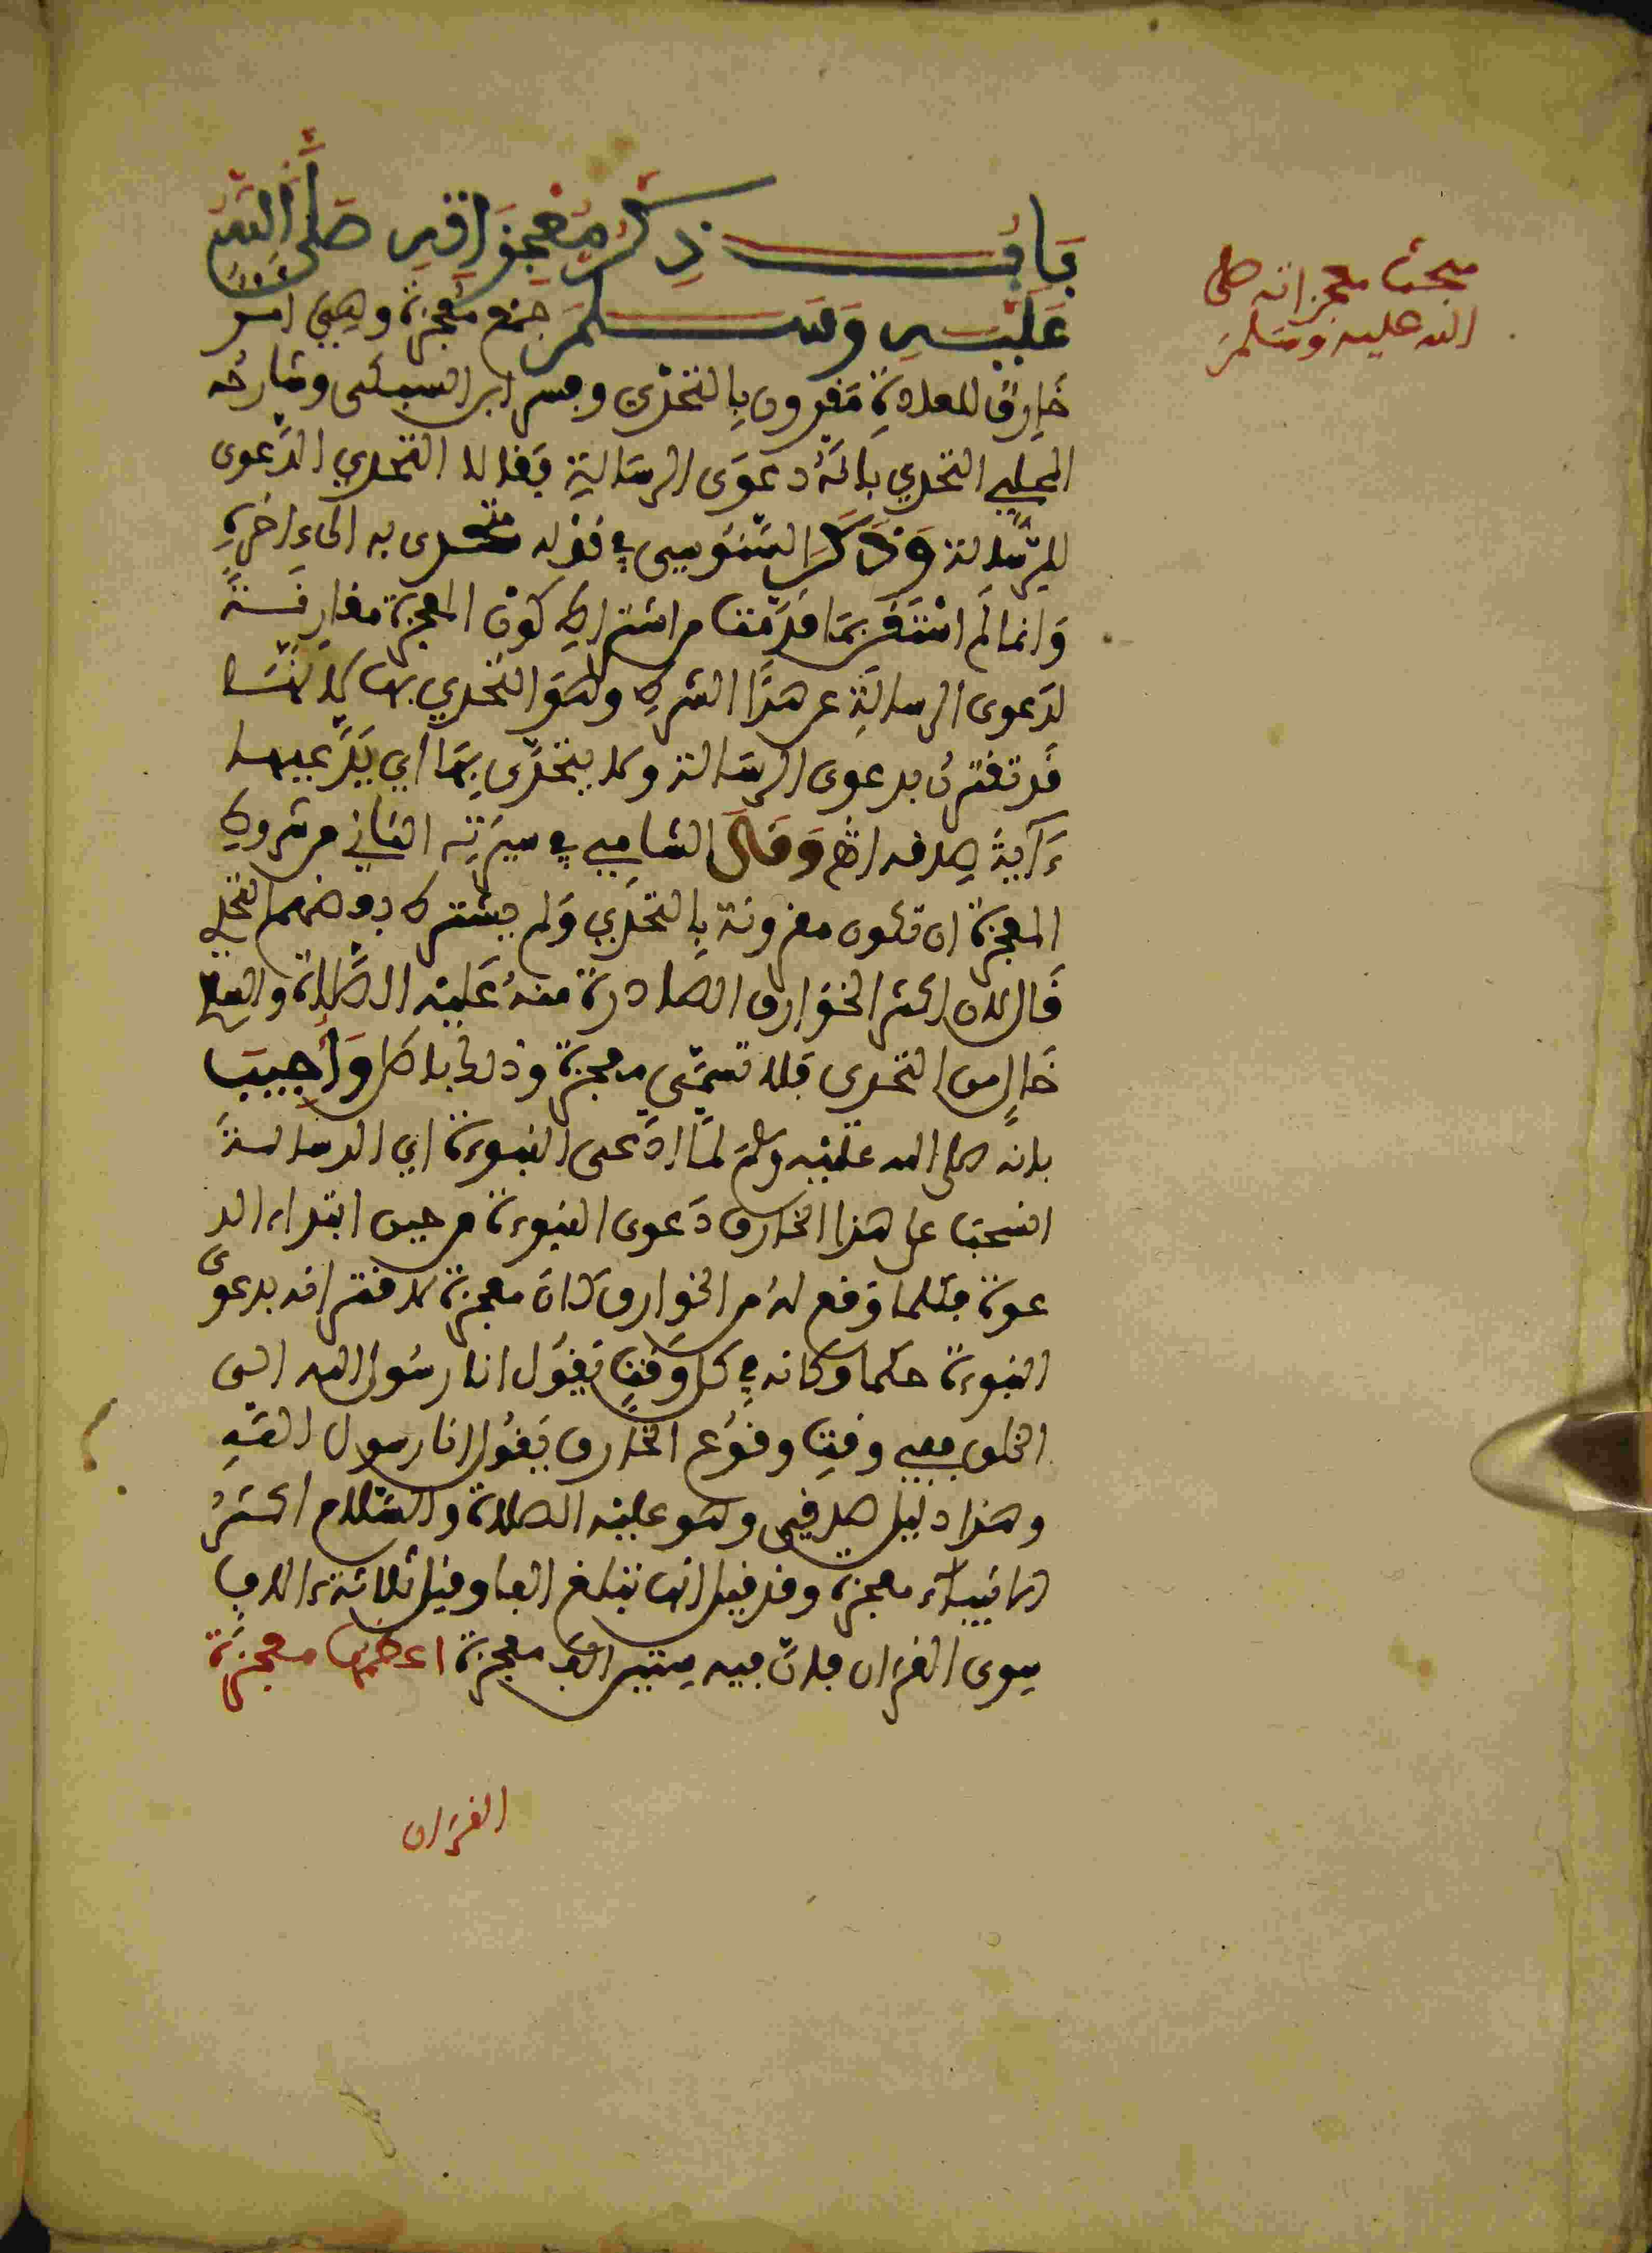 باب ذكر معجزاته صلى الله
عليه وسلم جمع معجزة وهي امر
خارق للعادة مقرون بالتحدي وفسر ابن السبكي وشارحه
المحلي التحدي بانه دعوى الرسالة فقالا التحدي الدعوى
للرسالة وذكر السنوسي في قوله متحدى به
وانما لم استغن بما قدمت من اشتراط كون المعجزة مقارنة
لدعوى الرسالة عن هذا الشرط وهو التحدي بها لانها
قد تقترن بدعوى الرسالة ولا يتحدى بها اي يدعيها
ءاية صدقه اه‍ وقال الشامي في سيرته الثاني من شروط
المعجزة ان تكون مقرونة بالتحدي ولم يشترط بعضهم التحدي
قال لان اكثر الخوارق الصادرة منه عليه الصلاة والسلام
خال من التحدي فلا تسمى معجزة وذلك باطل واجيب
بانه صلى الله عليه وسلم لما ادعى النبوءة اي الرسالة
انسحبت على هذا الخارق دعوى النبوءة من حين ابتداء الد
عوة فكلما وقع له من الخوارق كان معجزة لاقترانه بدعوى
النبوءة حكما وكانه في كل وقت يقول انا رسول الله الى
الخلق ففي وقت وقوع الخارق يقول انا رسول الله
وهذا دليل صدقي وهو عليه الصلاة والسلام اكثر
الانبياء معجزة وقد قيل انها تبلغ الفا وقيل ثلاثة ءالاف
سوى القرءان فان فيه ستين الف معجزة اعظمها معجزة
القرءان
مبحث معجزاته صلى
الله عليه وسلم